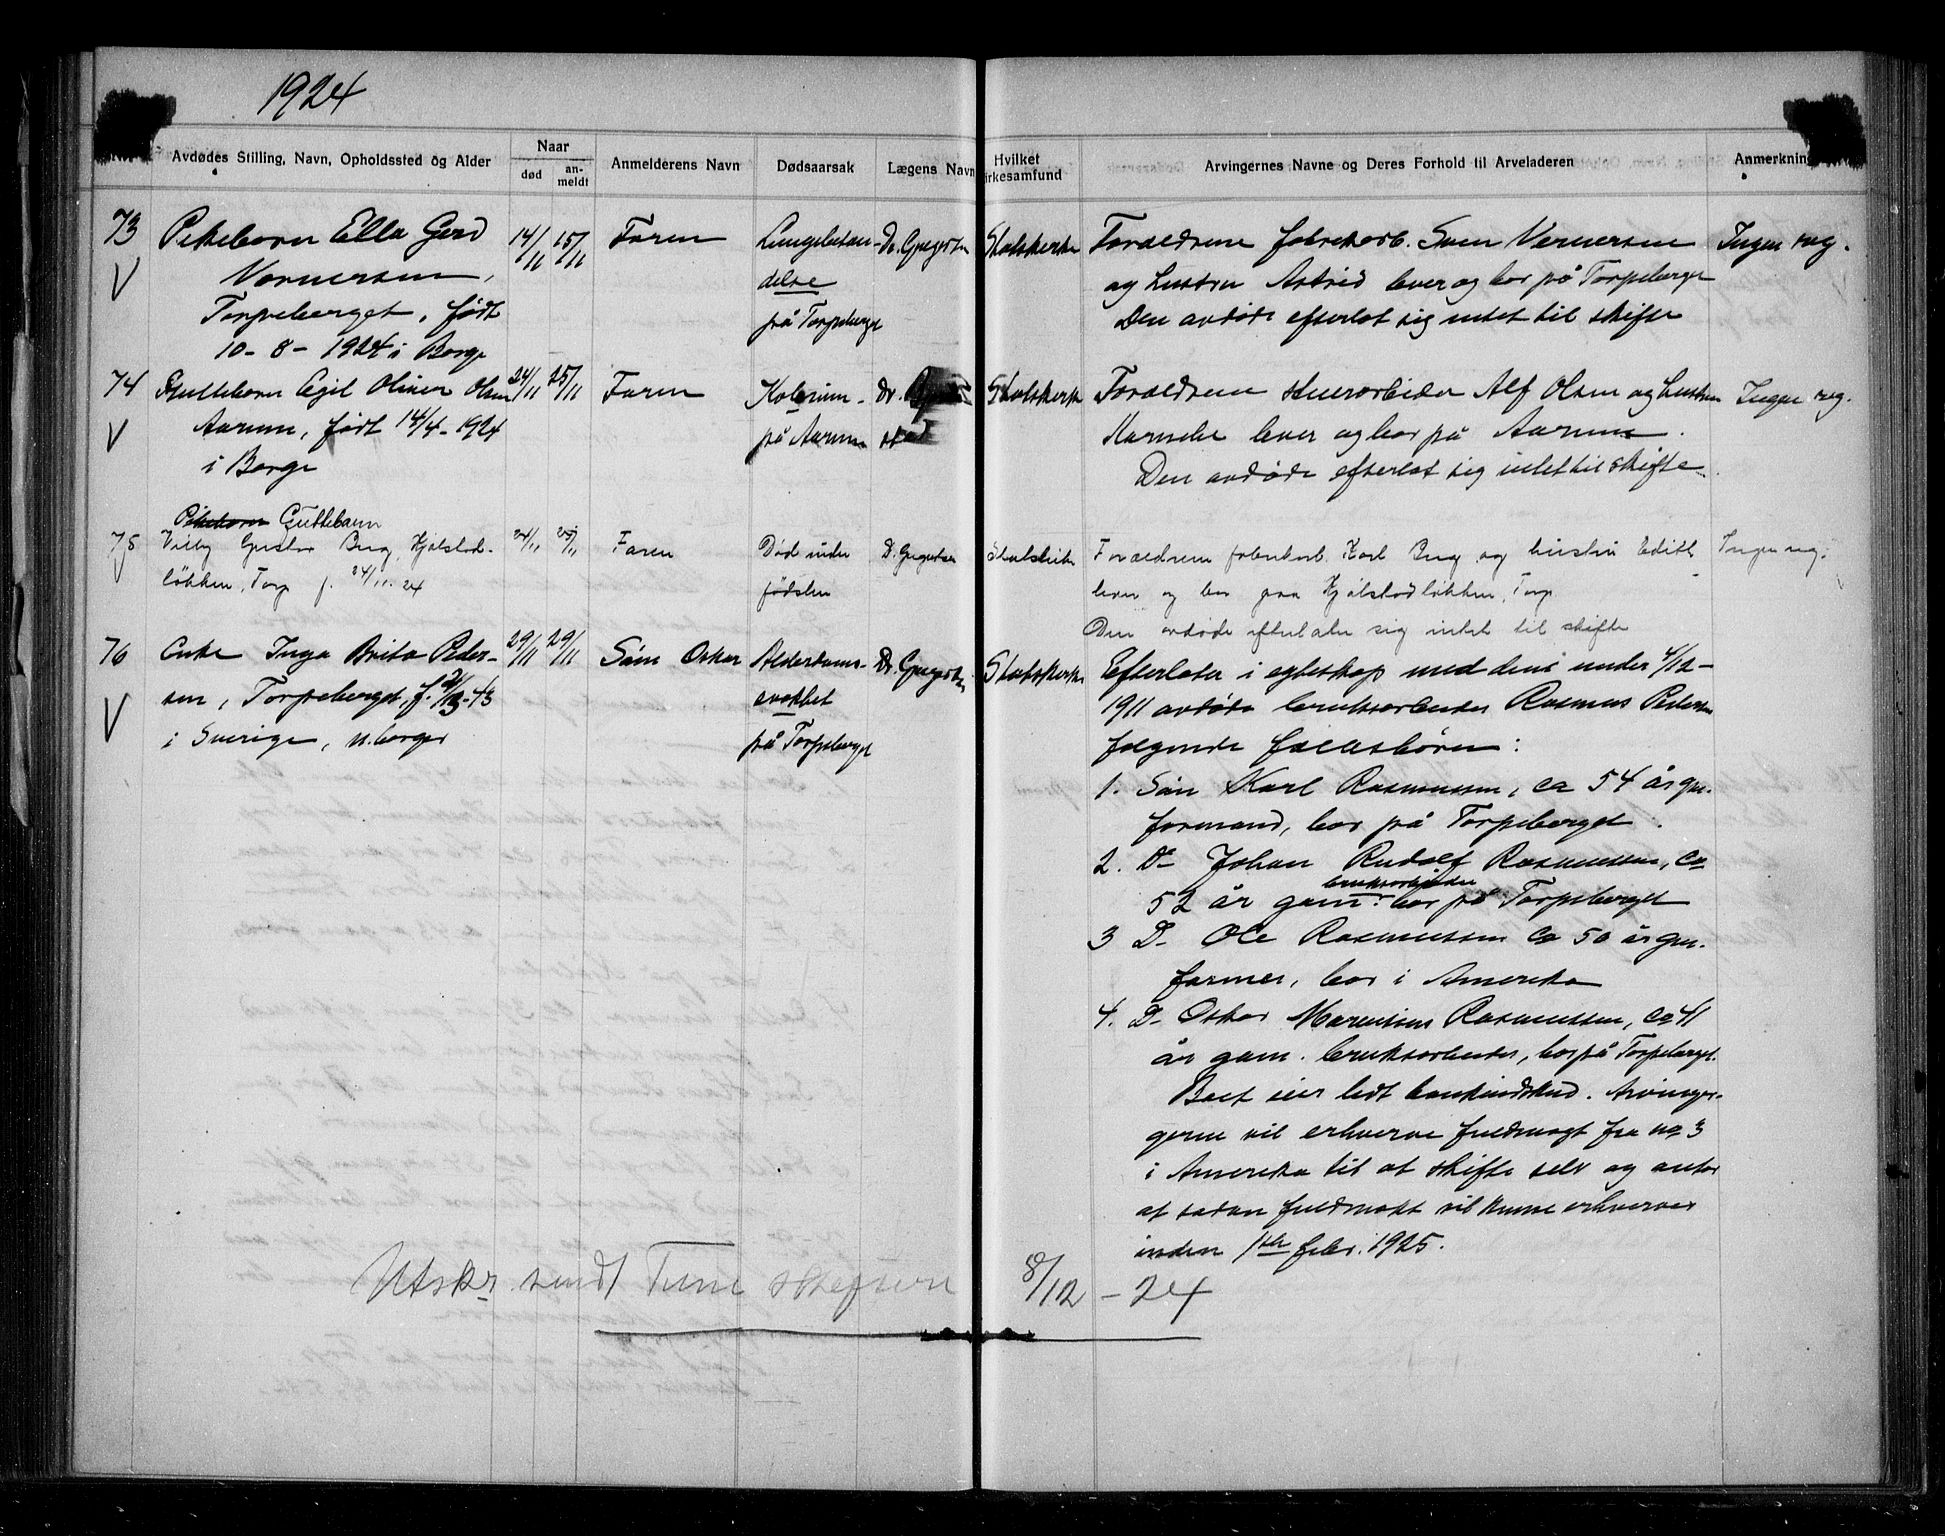 1924
Avdødes Stilling, Navn, Opholdssted og Alder
Naar
død
an-
meldt
Anmelderens Navn
Dødsaarsak
Lægens Navn
Hvilket
irkesamfund
Arvingernes Navne og Deres Forhold til Arveladeren
Anmerkning
73
Pikebarn Ella Gerd
Vernersen,
Torpeberget, født
10-8-1924 i Borge
14/11
15/11
Faren
Lungebetæn-
delse
på Torpeberget
Dr. Gregersen
Statskirke
Forældrene fabrikarb. Sven Vernersen
og hustru Astrid lever og bor på Torpeberget
Den avdøde efterlot sig intet til skifte
Ingen reg.
74
Guttebarn Egil Oliver Olsen
Aarum, født 14/4-1924
i Borge
24/11
25/11
Faren
på Aarum
Dr.
Statskirke
Forældrene stenarbeider Alf Olsen og hustru
lever og bor på Aarum.
Den avdøde efterlot sig intet til skifte
Ingen reg.
75
Pikebarn Guttebarn
Villy Gustav Berg, Hjølstad-
løkken, Torp f. 24/11.24
24/11
25/11
Faren
Død under
fødslen
D. Gregersen
Statskirke
Forældrene fabrikarb. Karl Berg og hustru Edith
lever og bor paa Hjølstadløkken, Torp
Den avdøde efterlater sig intet til skifte
Ingen reg.
76
Enke Inga Brita Peder-
sen, Torpeberget, f.
i Sverige, n. borger
29/11
29/11
Søn Oskar
Alderdoms-
svakhet
på Torpeberget
Dr. Gregersen
Statskirke
Efterlater i egteskap med den under 4/12-
1911 avdøde bruksarbeider Rasmus Pedersen
følgende fællesbørn:
1. Søn Karl Rasmussen, ca 54 år gm.
formand, bor på Torpeberget.
2. Do Johan Rudolf Rasmussen, ca
bruksarbeider
52 år gam. bor på Torpeberget
3 Do Ole Rasmussen ca 50 år gm.
farmer, bor i Amerika
4. Do Oskar Marentius Rasmussen, ca 41
år gam. bruksarbeider, bor på Torpeberget.
Boet eier litt bankindskud. Arvinger-
gerne vil erhverve fuldmagt fra no 3
i Amerika til at skifte selv og antar
at sådan fuldmakt vil kunne erhverves
inden 1ste febr. 1925.
Utskr sendt Tune skifteret 8/12-24